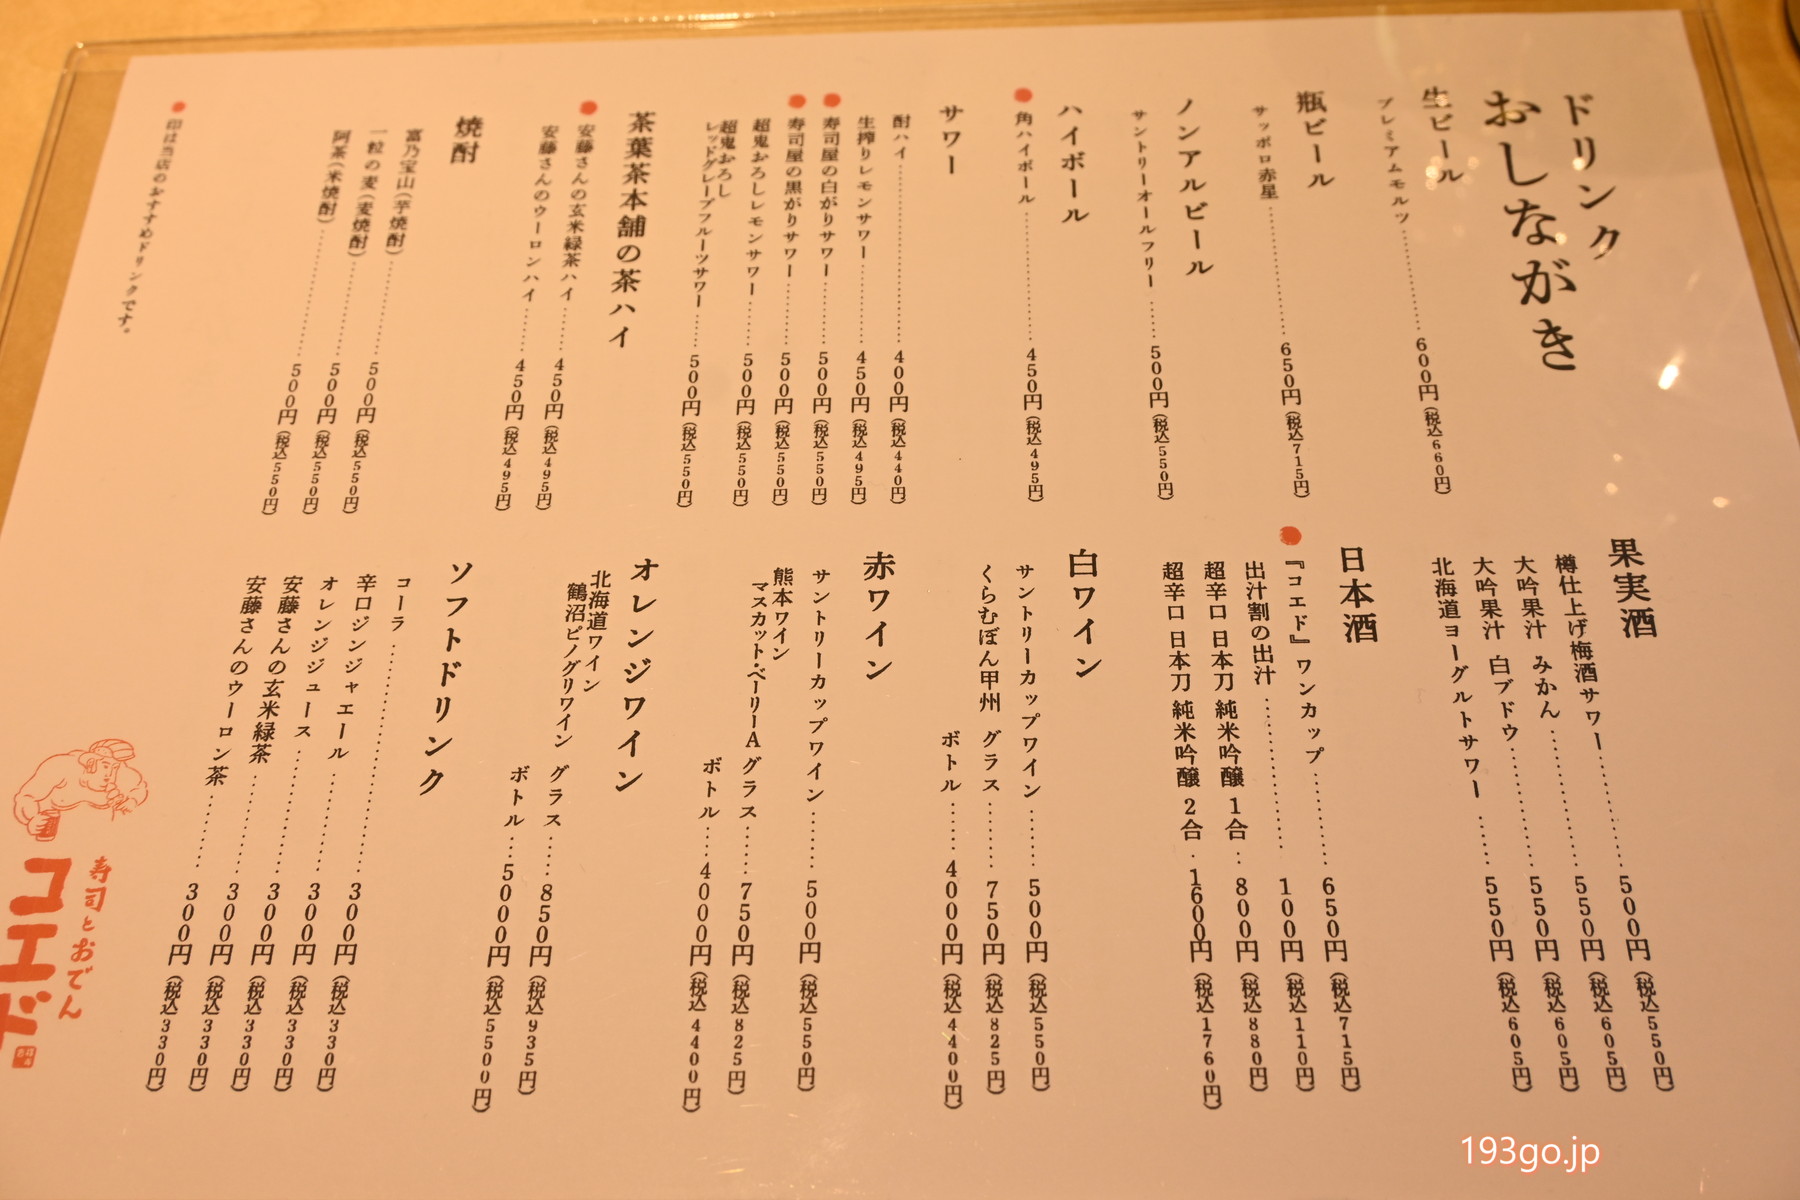 ドリンク
おしながき
生ビール
プレミアムモルツ……600円(税込660円)
瓶ビール
サッポロ赤星……650円(税込715円)
ノンアルビール
サントリーオールフリー……500円(税込550円)
ハイボール
角ハイボール……450円(税込495円)
サワー
酎ハイ……400円(税込440円)
生搾りレモンサワー……450円(税込495円)
寿司屋の白がりサワー……500円(税込550円)
寿司屋の黒がりサワー……500円(税込550円)
超鬼おろしレモンサワー……500円(税込550円)
超鬼おろし
レッドグレープフルーツサワー……500円(税込550円)
茶葉茶本舗の茶ハイ
安藤さんの玄米緑茶ハイ……450円(税込495円)
安藤さんのウーロンハイ……450円(税込495円)
焼酎
富乃宝山(芋焼酎)……500円(税込550円)
一粒の麦(麦焼酎)……500円(税込550円)
阿茶(米焼酎)……500円(税込550円)
●印は当店のおすすめドリンクです。
果実酒
樽仕上げ梅酒サワー……500円(税込550円)
大吟果汁 みかん……550円(税込605円)
大吟果汁 白ブドウ……550円(税込605円)
北海道ヨーグルトサワー……550円(税込605円)
日本酒
『コエド』ワンカップ……650円(税込715円)
出汁割の出汁……100円(税込110円)
超辛口 日本刀 純米吟醸 1合…800円(税込880円)
超辛口 日本刀 純米吟醸 2合・1600円(税込1760円)
白ワイン
サントリーカップワイン……500円(税込550円)
くらむぼん甲州 グラス……750円(税込825円)
ボトル……4000円(税込4400円)
赤ワイン
サントリーカップワイン……500円(税込550円)
熊本ワイン
マスカット・ベーリーA グラス……750円(税込825円)
ボトル……4000円(税込4400円)
オレンジワイン
北海道ワイン
鶴沼ピノグリワイン グラス……850円(税込935円)
ボトル…5000円(税込5500円)
ソフトドリンク
コーラ……300円(税込330円)
辛口ジンジャエール……300円(税込330円)
オレンジジュース……300円(税込330円)
安藤さんの玄米緑茶……300円(税込330円)
安藤さんのウーロン茶……300円(税込330円)
寿司とおでん
コエド
193go.jp